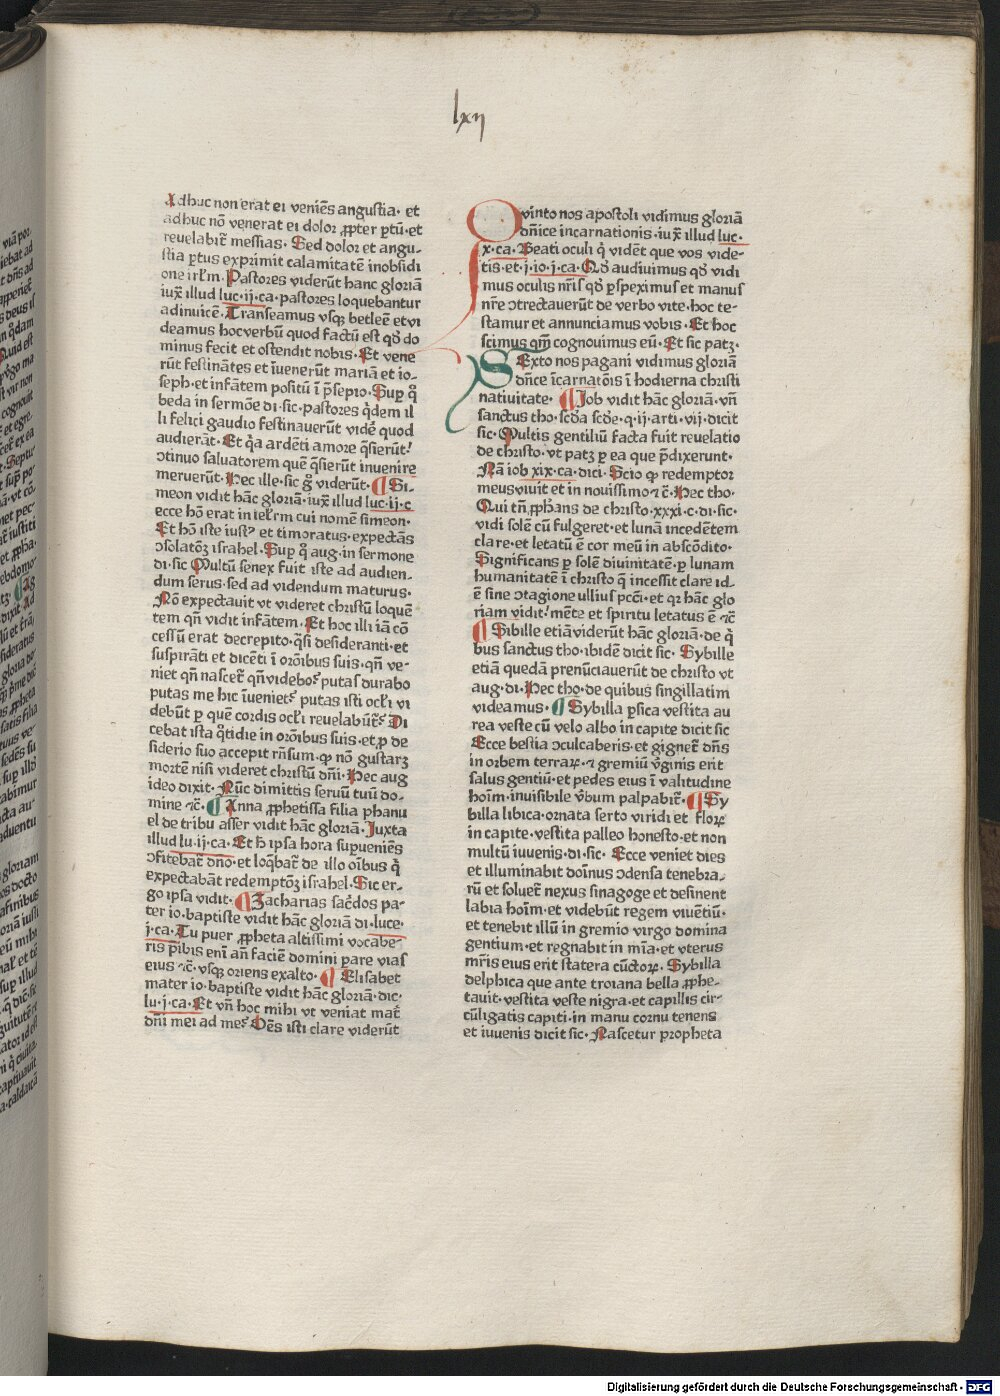 lxij
Adhuc non erat ei veniēs angustia· et
adhuc nō venerat ei dolor ꝓpter ptū·et
reuelabit᷒ messias· Sed dolor et angu-
stia ꝑtus exprimit calamitatē inobsidi
one irl̄m· Pastores viderūt hanc gloriā
iux̄ illud luc·ij·ca·pastores loquebantur
adinuicē·Transeamus vsqꝫ betleē et vi
deamus hoc verbū quod factū est qđ do
minus fecit et ostendit nobis·Et vene
rūt festinātes et īuenerūt mariā et io-
seph·et infātem positū ī p̄sepio·Suꝑ q̊
beda in sermōe di·sic·pastores q̇dem il
li felici gaudio festinauerūt vidē quod
audierāt·Et q̇a ardēti amore q̄sierūt
ɔtinuo saluatorem quē q̄sierūt inuenire
meruerūt·Hec ille·sic g̊ viderūt·¶Si-
meon vidit hāc gloriā·iux̄ illud luc·ij·c
ecce hō erat in ierl̄m cui nomē simeon·
Et hō iste iust᷒ et timoratus·expectās
ɔsolatōꝫ israhel·Suꝑ q̊ aug·in sermone
di·sic Multū senex fuit iste ad audien-
dum serus·sed ad videndum maturus·
Nō expectauit vt videret christū loquē
tem qn̄ vidit infātem·Et hoc illi iā cō
cessū erat decrepito·q̄si desideranti·et
suspirāti et dicēti ī orōibus suis·qn̄ ve-
niet qn̄ nascet᷒ qn̄ videbo᷒ putas durabo
putas me hic īueniet᷒ putas isti ocl̓i vi
debūt ꝑ quē cordis ocl̓i reuelabūt᷒ Di
cebat ista q̊tidie in orōibus suis·et ꝓ de
siderio suo accepit rn̄sum·ꝙ nō gustarꝫ
mortē nisi videret christū dn̄i·Hec aug
ideo dixit·Nūc dimittis seruū tuū do-
mine ⁊c̄·¶ Anna ꝓphetissa filia phanu
el de tribu asser vidit hāc gloriā·Juxta
illud lu·ij·ca·Et h̄ ipsa hora suꝑueniēs
ɔfitebat᷒ dn̄o·et loq̇bat᷒ de illo oībus q̇
expectabāt redemptōꝫ israhel·Sic er-
go ipsa vidit·¶Zacharias sac̓dos pa-
ter io·baptiste vidit hāc gloriā di·luce·
j·ca·Tu puer ꝓpheta altissimi vocabe-
ris p̄ibis enī an̄ faciē domini pare vias
eius ⁊c̄·vsqꝫ oriens exalto·¶ Elisabet
mater io·baptiste vidit hāc gloriā·dic·
lu·j·ca·Et vn̄ hoc mihi vt veniat mat̓
dn̄i mei ad me᷒ Oēs isti clare viderūt
Qvinto nos apostoli vidimus gloriā
dn̄ice incarnationis·iux̄ illud luc·
x·ca·Beati oculi q̇ vidēt que vos vide-
tis·et·j·io·j·ca·Qđ audiuimus qđ vidi
mus oculis nr̄is qđ ꝑspeximus et manus
nr̄e ɔtrectauerūt de verbo vite·hoc te-
stamur et annunciamus vobis·Et hoc
scimus qm̄ cognouimus eū·Et sic patꝫ·
SExto nos pagani vidimus gloriā
dn̄ice īcarnatōis ī hodierna christi
natiuitate·¶Job vidit hāc gloriā·vn̄
sanctus tho·sc̄da sc̄de·q·ij·arti·vij·dicit
sic·Multis gentiliū facta fuit reuelatio
de christo·vt patꝫ ꝑ ea que p̄dixerunt·
Nā iob xix·ca·dici·Scio ꝙ redemptor
meus viuit et in nouissimo ⁊c̄·Hec tho·
Qui tn̄ ꝓphans de christo·xxxi·c·di·sic·
vidi solē cū fulgeret·et lunā incedētem
clare·et letatū ē cor meū in abscōdito·
Significans ꝑ solē diuinitatē·ꝑ lunam
humanitatē ī christo q̄ incessit clare id-
ē sine ɔtagione ullius pcc̄i·et qꝛ hāc glo
riam vidit᷒ mēte et spiritu letatus ē ⁊c̄
¶ Sibille etiā viderūt hāc gloriā·de q̇
bus sanctus tho·ibidē dicit sic·Sybille
etiā quedā prenūciauerūt de christo vt
aug·di·Hec tho·de quibus singillatim
videamus·¶Sybilla ꝑsica vestita au
rea veste cū velo albo in capite dicit sic
Ecce bestia ɔculcaberis·et gignet᷒ dn̄s
in orbem terraꝝ·⁊ gremiū v̓ginis erit
salus gentiū·et pedes eius ī valitudine
hoīm·inuisibile v̓bum palpabit᷒·¶Sy
billa libica·ornata serto viridi et floꝝ
in capite·vestita palleo honesto·et non
multū iuuenis·di·sic· Ecce veniet dies
et illuminabit doīnus ɔdensa tenebra-
rū et soluet᷒ nexus sinagoge et desinent
labia hoīm·et videbūt regem viuētiū·
et tenebit illū in gremio virgo domina
gentium·et regnabit in mīa·et vterus
mr̄is eius erit statera cūctoꝝ·Sybilla
delphica que ante troiana bella ꝓphe-
tauit·vestita veste nigra·et capillis cir-
cūligatis capiti·in manu cornu tenens
et iuuenis dicit sic·Nascetur propheta
Digitalisierung gefördert durch die Deutsche Forschungsgemeinschaft - DFG